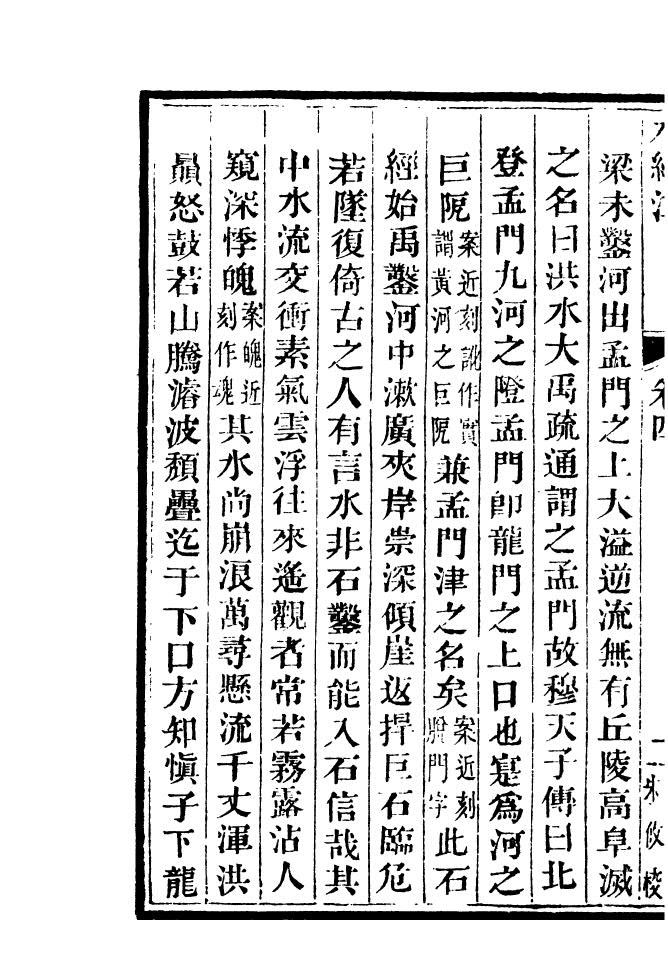 水經注 卷四 二 朱攸校
梁未鑿河出孟門之上大溢逆流無有丘陵高阜滅
之名曰洪水大禹疏通謂之孟門故穆天子傳曰北
登孟門九河之隥孟門卽龍門之上口也寔爲河之
巨阨案近刻訛作實謂黃河之巨阨兼孟門津之名矣案近刻脫門字此石
經始禹鑿河中漱廣夾岸崇深傾崖返捍巨石臨危
若墜復倚古之人有言水非石鑿而能入石信哉其
中水流交衝素氣雲浮往來遙觀者常若霧露沾人
窺深悸魄案魄近刻作魂其水尚崩浪萬尋懸流千丈渾洪
贔怒鼓若山騰濬波頹疊迄于下口方知愼子下龍